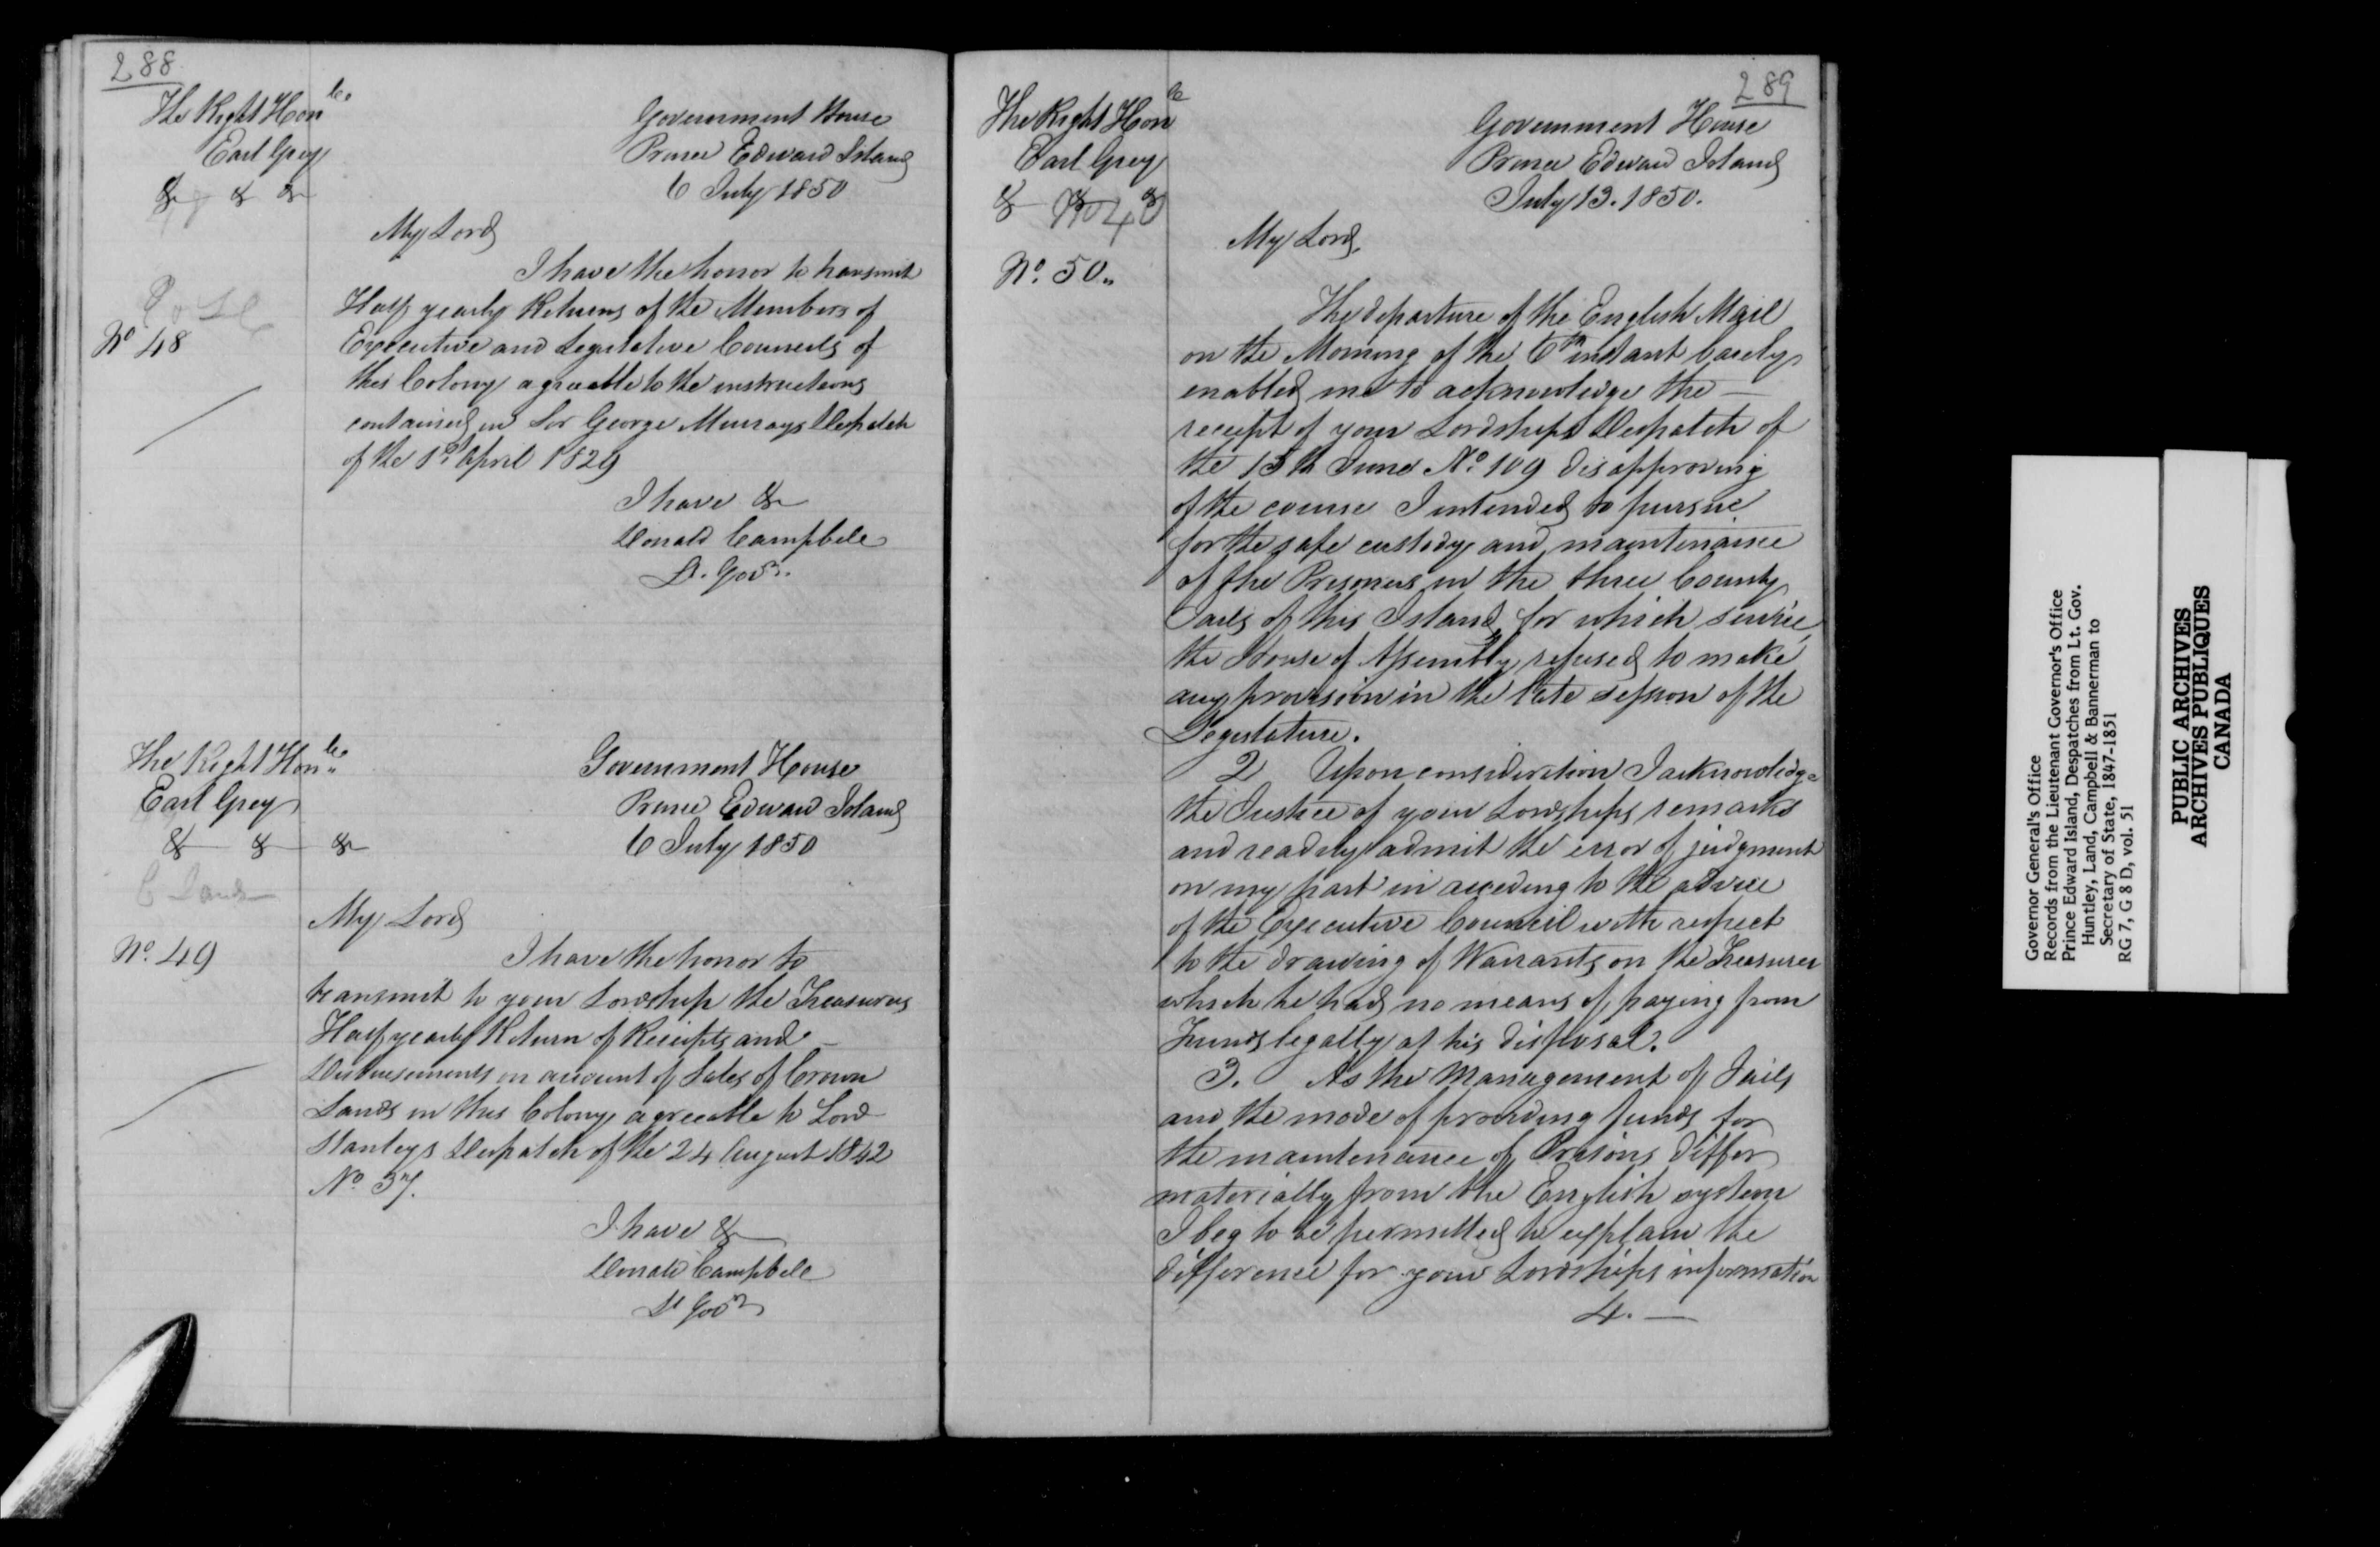 288
The Right Honble.
Earl Grey
& & &
Government House
Prince Edward Island
6 July 1850
My Lord
No 48
I have the honor to transmit
Half yearly Returns of the Members of
Executive and Legislative Councils of
this Colony agreeable to the instructions
contained in Sir George Murrays Despatch
of the 1st April 1829
I have &
Donald Campbell
Lt. Govr.
The Right Honble.
Earl Grey
& & &
Government House
Prince Edward Island
6 July 1850
C Lands
My Lord
No. 49
I have the honor to
transmit to your Lordship the Treasurers
Half yearly Return of Receipts and
Disbursements on account of Sales of Crown
Lands in this Colony agreeable to Lord
Stanleys Despatch of the 24 August 1842
No 37.
I have &
Donald Campbell
Lt Govr
289
The Right Honble
Earl Grey
& & &
Government House
Prince Edward Island
July 13. 1850.
My Lord,
No. 50.
The departure of the English Mail
on the Morning of the 6th instant barely
enabled me to acknowledge the
receipt of your Lordships Despatch of
the 15th June No. 109 disapproving
of the course I intended to pursue
for the safe custody and maintenance
of the Prisoners in the three County
Jails of this Island, for which service
the House of Assembly refused to make
any provision in the late session of the
Legislature.
2 Upon consideration I acknowledge
the Justice of your Lordships remarks
and readily admit the error of judgment
on my part in acceding to the advice
of the Executive Council with respect
to the drawing of Warrants on the Treasurer
which he had no means of paying from
Funds legally at his disposal.
3. As the Management of Jails
and the mode of providing funds for
the maintenance of Prisons differ
materially from the English system
I beg to be permitted to explain the
difference for your Lordships information
4. —
Governor General's Office
Records from the Lieutenant Governor's Office
Prince Edward Island, Despatches from Lt. Gov.
Huntley, Land, Campbell & Bannerman to
Secretary of State, 1847-1851
RG 7, G 8 D, vol. 51
PUBLIC ARCHIVES
ARCHIVES PUBLIQUES
CANADA